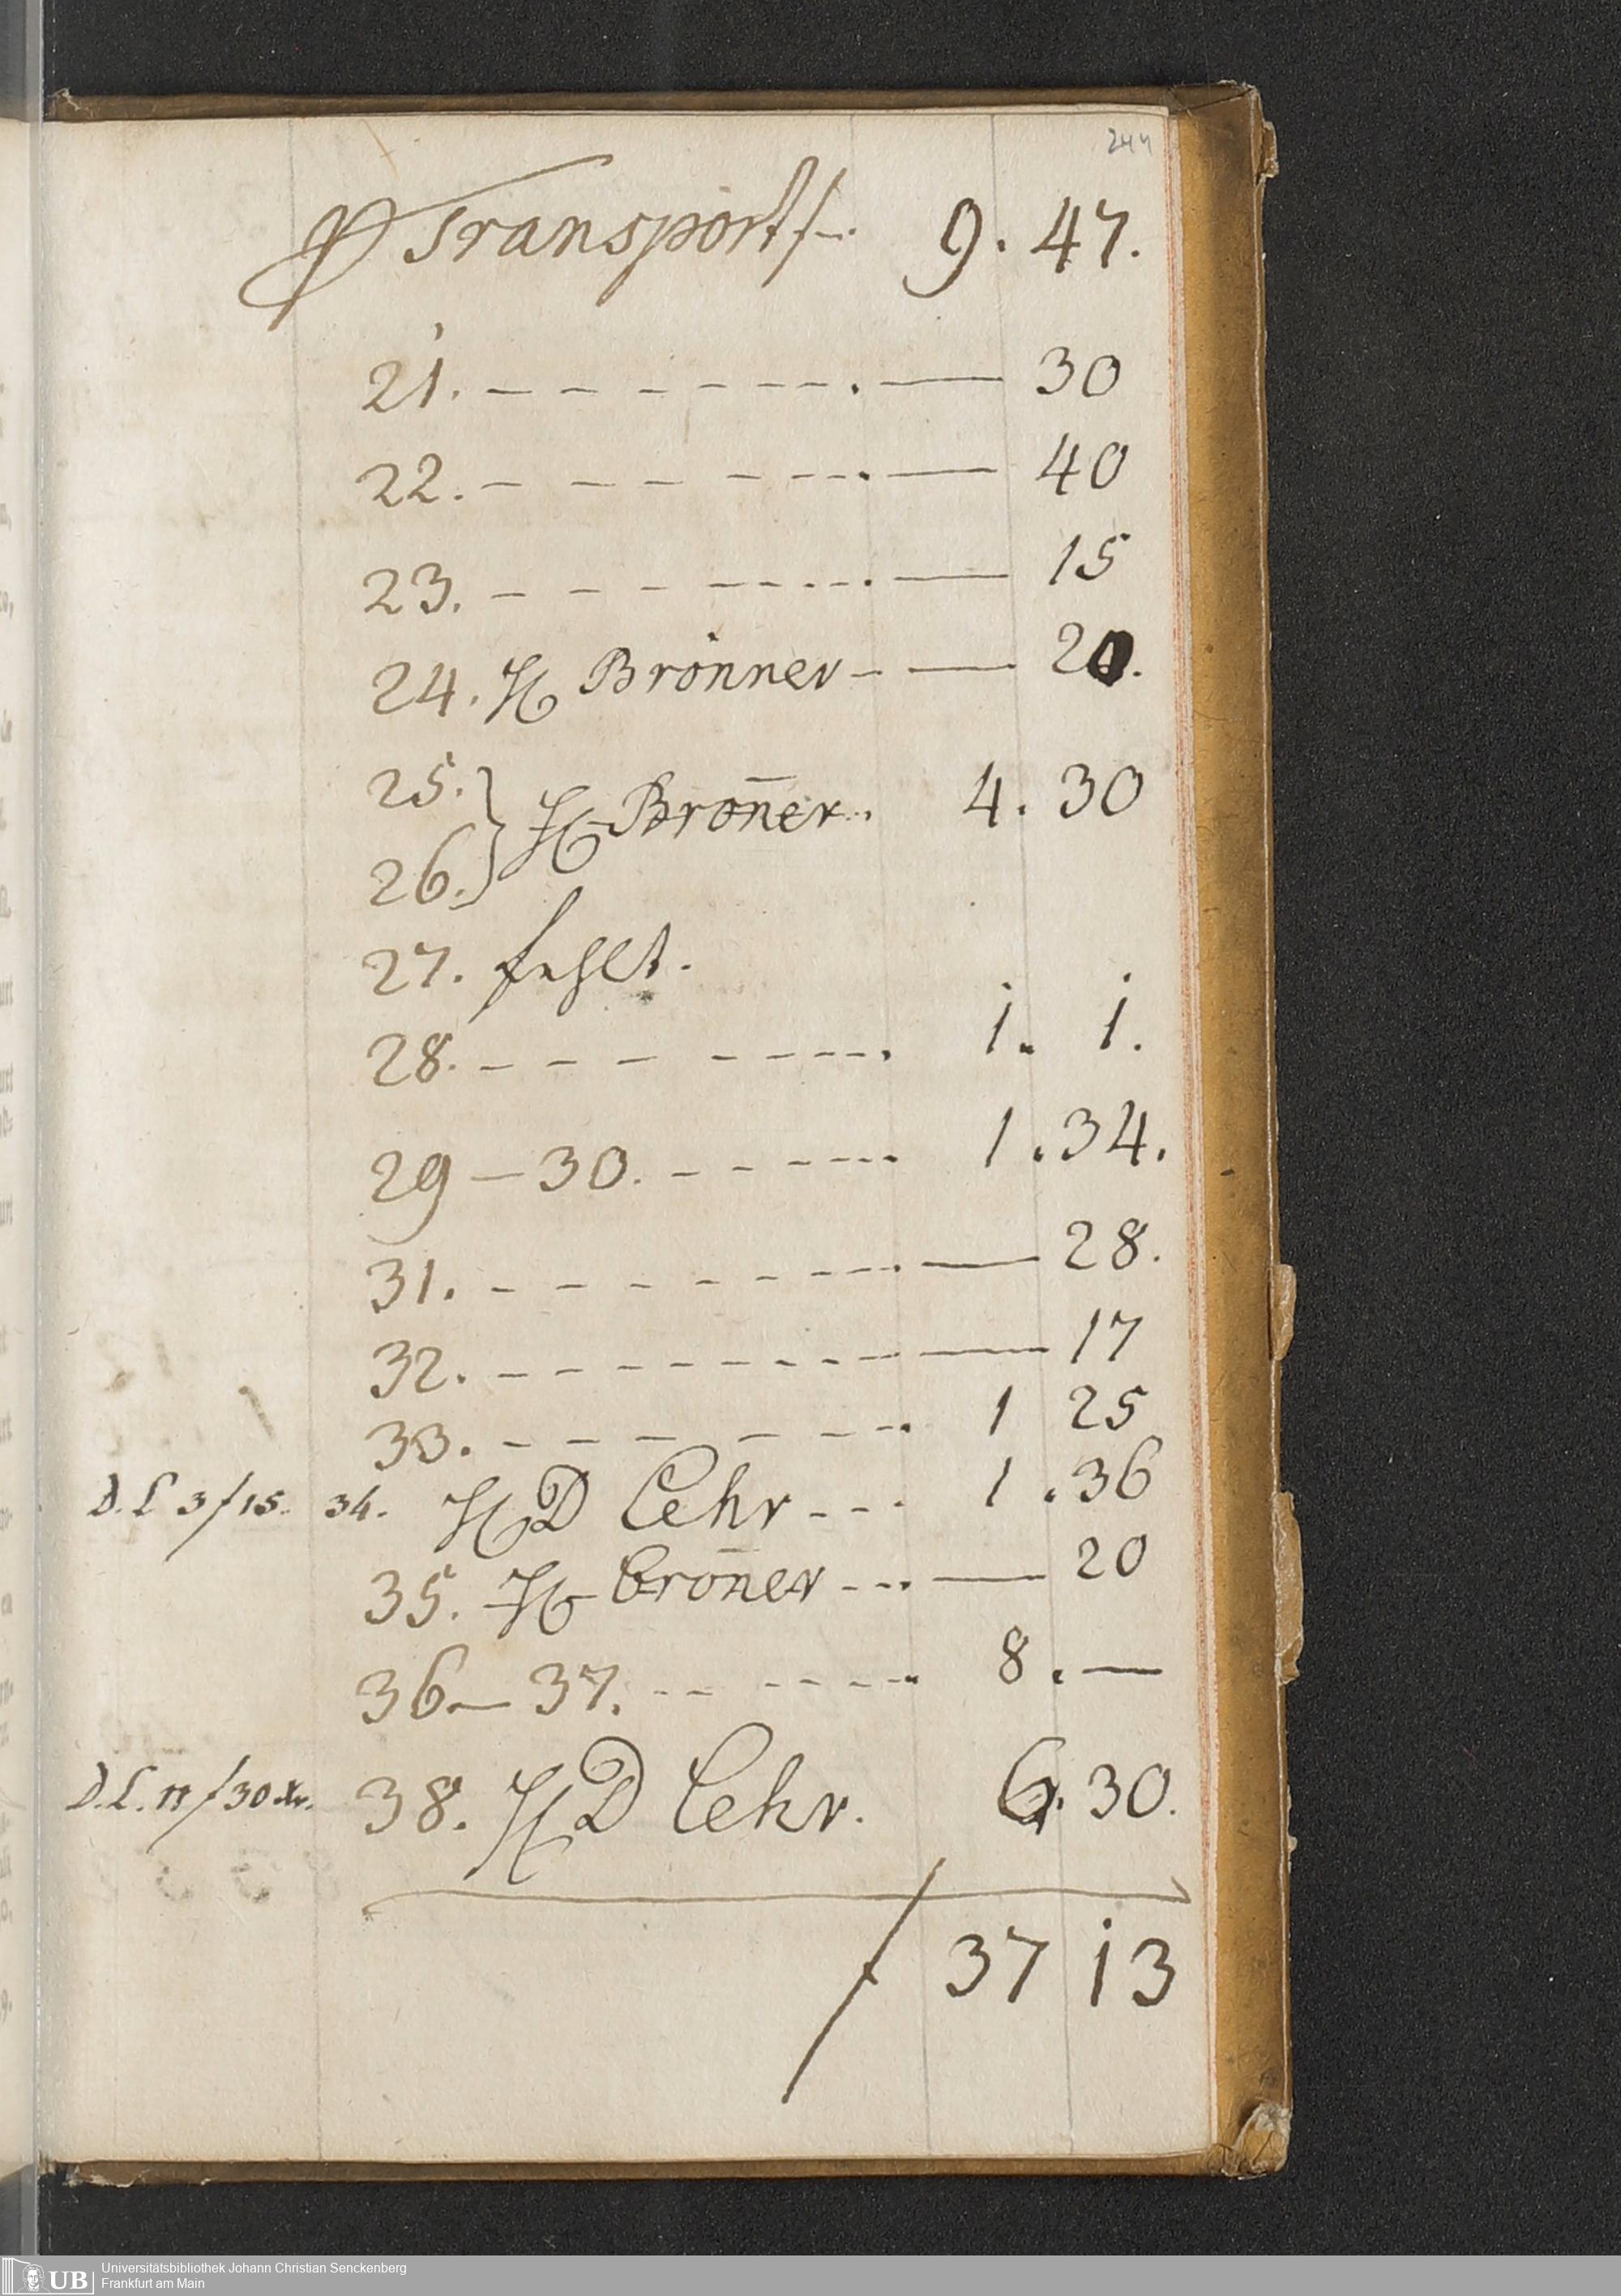 244
Transport f –. 9. 47.
21. – – – – – – – . — 30
22. – – – – – – – . — 40
23. – – – – – – – . — 15
24. H Brönner – — 20.
25. } H Broñer. . 4. 30
26. }
27. fehlt.
28. – – – – – – – . 1. 1.
29 – 30. – – – – – . 1. 34.
31. – – – – – – – . — 28.
32. – – – – – – – – — 17
33. – – – – – – . 1 25
D. L 3 f 15. 34. H D Lehr - - - 1. 36
35. H Broñer - - . — 20
36 – 37. – – – – – . 8. —
D. L. 11 f 30 xr. 38. H D Lehr. 6. 30.
f 37 13
UB Universitätsbibliothek Johann Christian Senckenberg
Frankfurt am Main